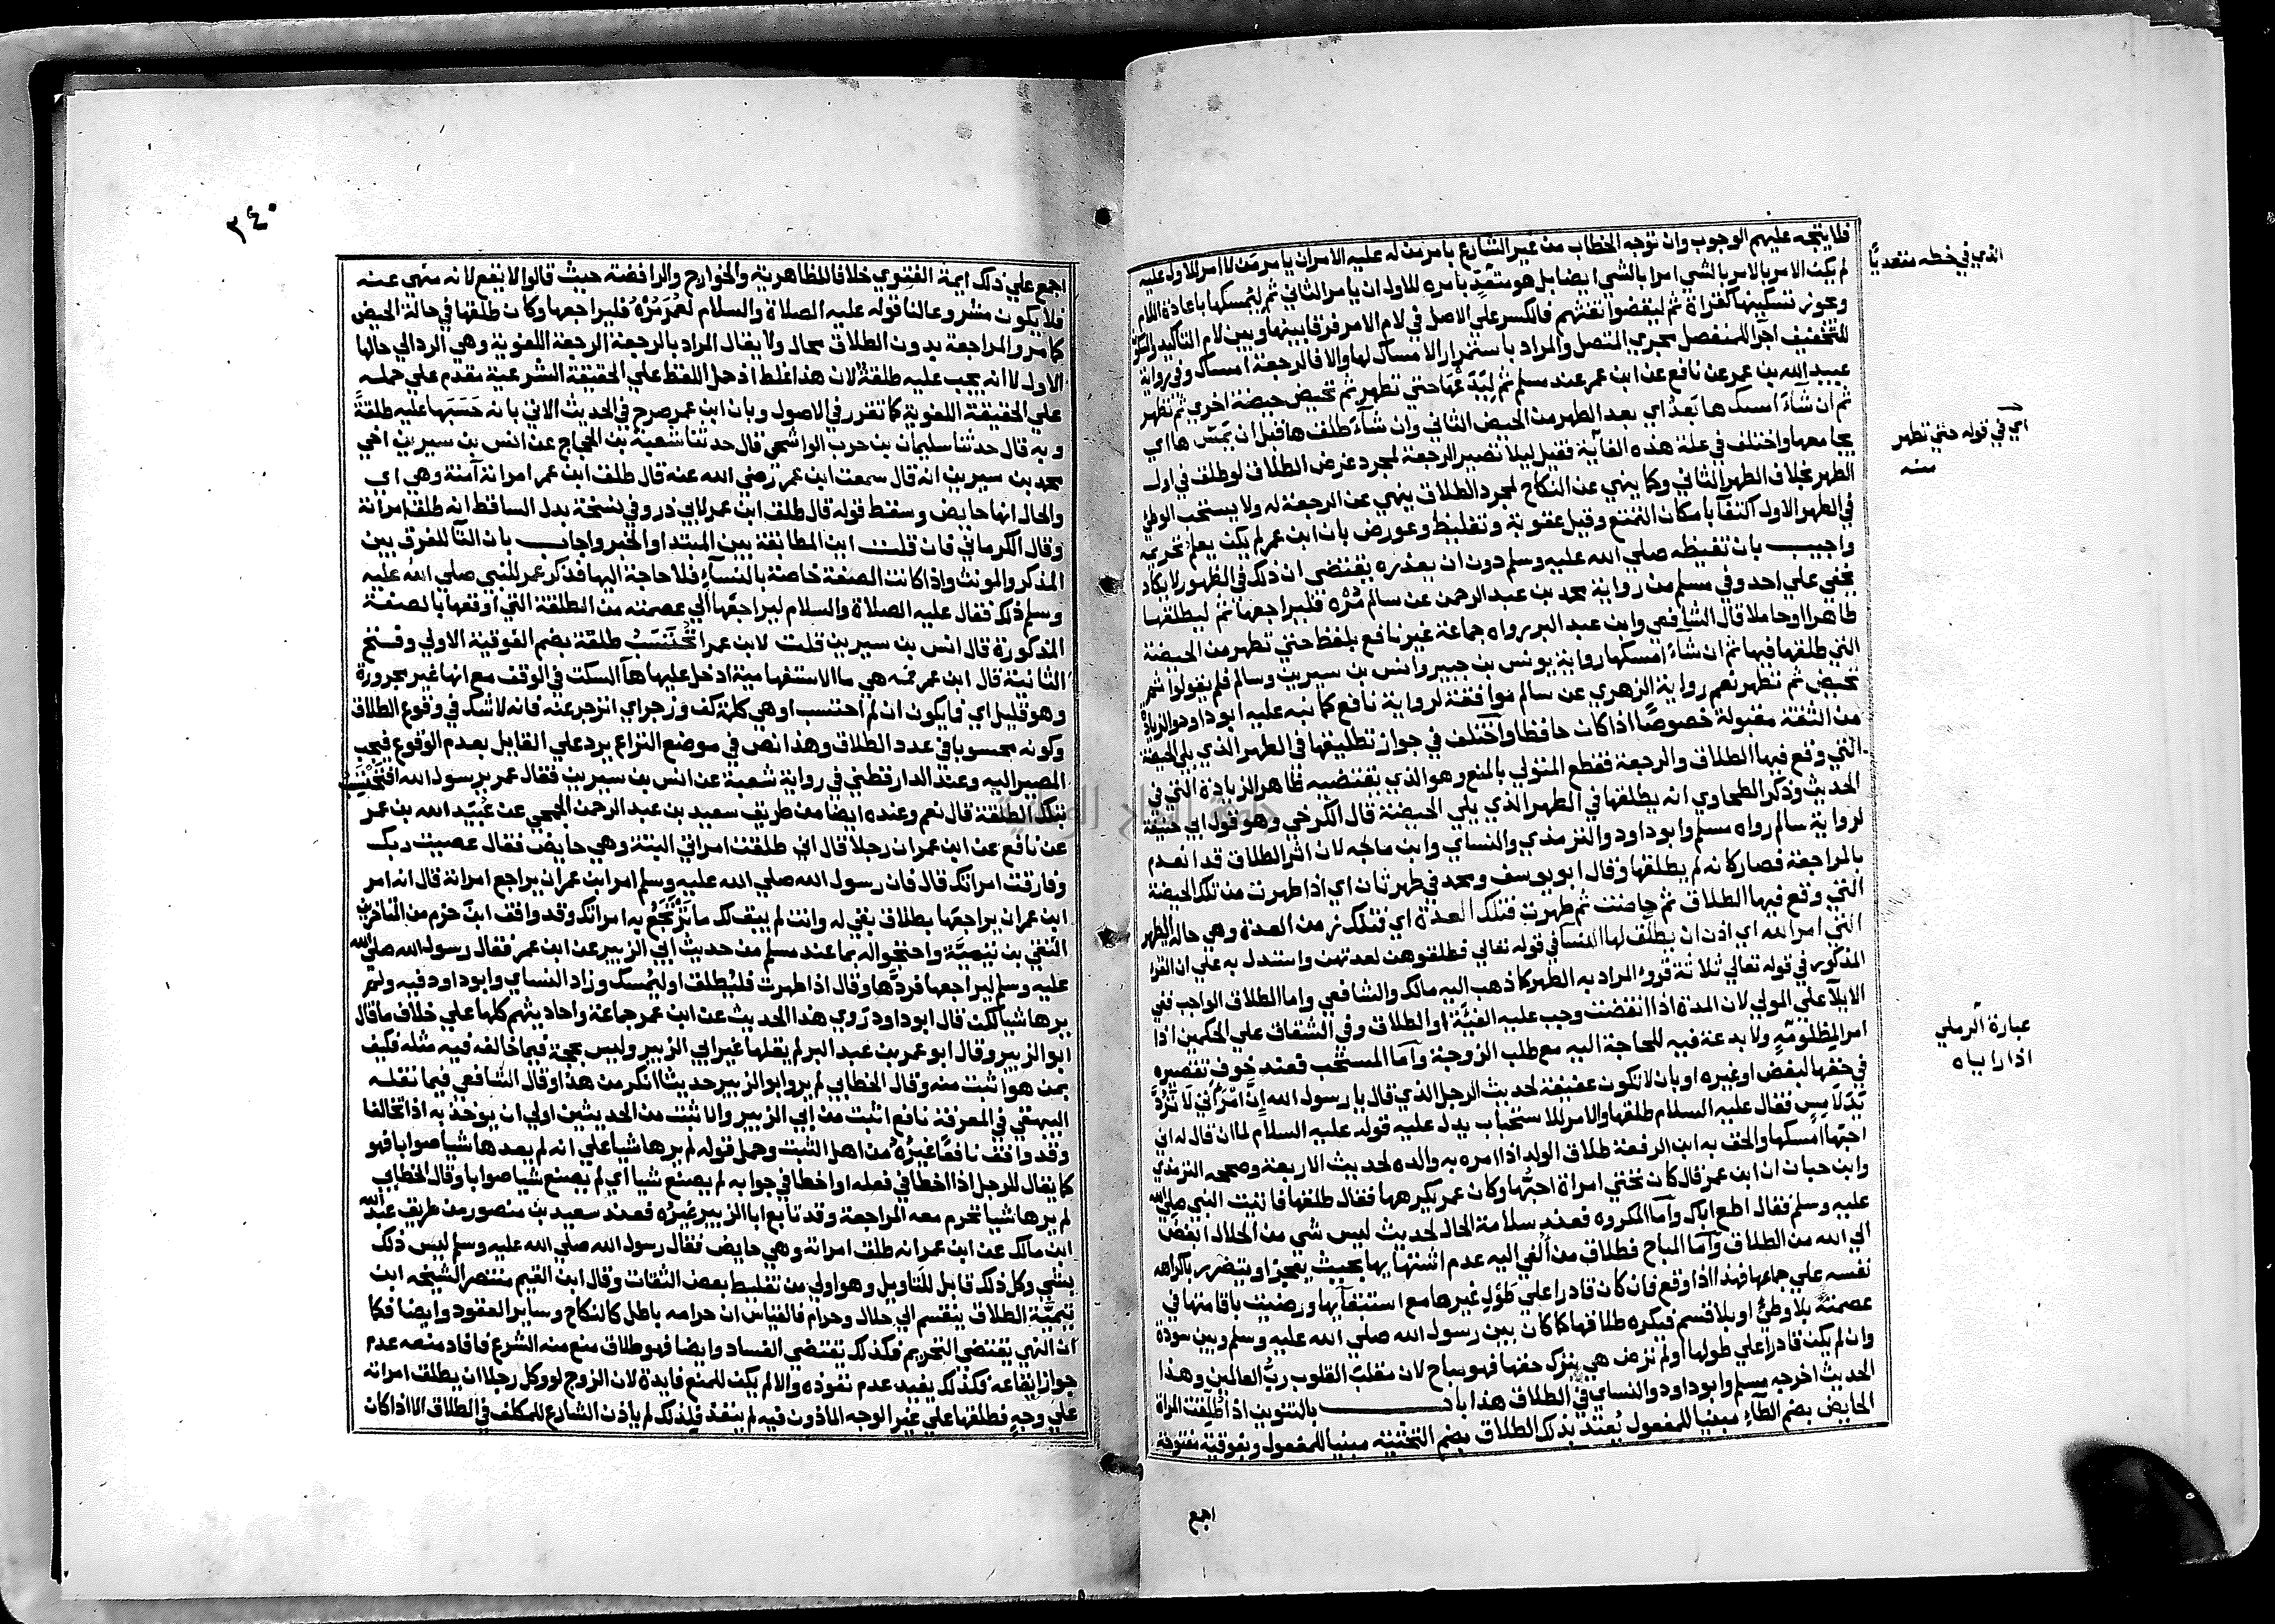 فلا يتجه عليهم الوجوب وان توجه الخطاب من غير الشارع بامر من له عليه الامر ان يامر من لا امر للاول عليه
لم يكن الامر بالامر بالشي امرا بالشي ايضا بل هو متعدٍّ بامره للاول ان يامر الثاني ثم ليمسكها باعادة اللام
ويجوز تسكينها كقراة ثم ليقضوا تفثهم فالكسر علي الاصل في لام الامر فرقا بينها وبين لام التاكيد والسكون
للتخفيف اجرا للمنفصل مجري المتصل والمراد باستمرار الامساك لها والا فالرجعة امساك وفي رواية
عبيد الله بن عمر عن نافع عن ابن عمر عند مسلم ثم ليَدَعْهَا حتي تطهر ثم تحيض حيضة اخري ثم تطهر
ثم ان شآء امسكها بَعدُ اي بعد الطهر من الحيض الثاني وان شآء طلقها قبل ان يَمَسّها اي
يجامعها واختلف في علة هذه الغآية فقيل ليلا تصير الرجعة لمجرد غرض الطلاق لو طلق في اول
الطهر بخلاف الطهر الثاني وكما ينهي عن النكاح لمجرد الطلاق ينهي عن الرجعة له ولا يستحب الوطئ
في الطهر الاول اكتفآ بامكان التمتع وقيل عقوبة وتغليظ وعورض بان ابن عمر لم يكن يعلم تحريمه
واجيب بان تغيظه صلي الله عليه وسلم دون ان يعذره يقتضي ان ذلك في الظهور لا يكاد
يخفي علي احد وفي مسلم من رواية محمد بن عبد الرحمن عن سالم مُرْهُ فليراجعها ثم ليطلقها
طاهرا او حاملا قال الشافعي وابن عبد البر رواه جماعة غير نافع بلفظ حتي تطهر من الحيضة
التي طلقها فيها ثم ان شآء امسكها رواية يونس بن جبير وانس بن سيرين وسالم فلم يقولوا ثم
تحيض ثم تطهر نعم رواية الزهري عن سالم موافقة لرواية نافع كما نبه عليه ابو داود والزيادة
من الثقة مقبولة خصوصًا اذا كان حافظا واختلف في جواز تطليقها في الطهر الذي يلي الحيضة
التي وقع فيها الطلاق والرجعة فقطع المتولي بالمنع وهو الذي يقتضيه ظاهر الزيادة التي في
الحديث وذكر الطحاوي انه يطلقها في الطهر الذي يلي الحيضة قال الكرخي وهو قول ابي حنيفة
لرواية سالم رواه مسلم وابو داود والترمذي والنساي وابن ماجه لان اثر الطلاق قد انعدم
بالمراجعة فصار كانه لم يطلقها وقال ابو يوسف ومحمد في طهر ثان اي اذا طهرت من تلك الحيضة
التي وقع فيها الطلاق ثم حاضت ثم طهرت فتلك العدة اي فتلك زمن العدة وهي حالة الطهر
التي امر الله اي اذن ان يطلق لها النسا في قوله تعالي فطلقوهن لعدتهن واستدل به علي ان القرا
المذكور في قوله تعالي ثلاثة قروء المراد به الطهر كما ذهب اليه مالك والشافعي واما الطلاق الواجب ففي
الايلآ علي المولي لان المدة اذا انقضت وجب عليه الفيئة او الطلاق وفي الشقاق علي الحكمين اذا
امر المظلومَة ولا بدعة فيه للحاجة اليه مع طلب الزوجة واما المستحب فعند خوف تقصيره
في حقها لبغض او غيره او بان لا تكون عفيفة لحديث الرجل الذي قال يا رسول الله ان امراتي لا تَرُدُّ
يَدَ لامِسٍ فقال عليه السلام طلقها والامر للاستحباب يدل عليه قوله عليه السلام لما ان قال له اني
احبها امسكها والحق به ابن الرفعة طلاق الولد اذا امره به والده لحديث الاربعة وصححه الترمذي
وابن حبان ان ابن عمر قال كان تحتي امراة احبُّها وكان عمر يكرهها فقال طلقها فاتيت النبي صلي الله
عليه وسلم فقال اطع اباك واما المكروه فعند سلامة الحال لحديث ليس شي من الحلال ابغض
الي الله من الطلاق واما المباح فطلاق من اُلقي اليه عدم اشتهايها بحيث يعجز او يتضرر باكراهه
نفسه علي جماعها فهذا اذا وقع فان كان قادرا علي طول غيرها مع استبقآيها ورضيت باقامتها في
عصمته بلا وطئ او بلا قسم فيكره طلاقها كما كان بين رسول الله صلي الله عليه وسلم وبين سودة
وان لم يكن قادرا علي طولها او لم ترض هي بترك حقها فهو مباح لان مقلب القلوب ربُّ العالمين وهذا
الحديث اخرجه مسلم وابو داود والنساي في الطلاق هذا باب بالتنوين اذا طُلِّقت المراة
الحايض بضم الطآء مبنيا للمفعول يُعتد بذلك الطلاق بضم التحتية مبنيا للمفعول وبفوقية مفتوحة
اجمع
الذي في خطه متعديًا
اي في قوله حتي تطهر
منه
عبارة الرملي
اذا راياه
٢٤٠
اجمع علي ذلك ايمة الفتوي خلافا للظاهرية والخوارج والرافضة حيث قالوا لا يقع لانه منهي عنه
فلا يكون مشروعا لنا قوله عليه الصلاة والسلام لعمر مُرْهُ فليراجعها وكان طلقها في حالة الحيض
كما مر والمراجعة بدون الطلاق محال ولا يقال المراد بالرجعة الرجعة اللغوية وهي الرد الي حالها
الاول لا انه يجب عليه طلقة لان هذا غلط اذ حمل اللفظ علي الحقيقة الشرعية مقدم علي حمله
علي الحقيقة اللغوية كما تقرر في الاصول وبان ابن عمر صرح في الحديث الاتي بانه حَسَبَها عليه طلقةً
وبه قال حدثنا سليمان بن حرب الواشحي قال حدثنا شعبة بن الحجاج عن انس بن سيرين اخي
محمد بن سيرين انه قال سمعت ابن عمر رضي الله عنه قال طلق ابن عمر امراته آمنة وهي اي
والحال انها حايض وسقط قوله قال طلق ابن عمر لابي ذر وفي نسخة بدل الساقط انه طلق امراتة
وقال الكرماني فان قلت اين المطابقة بين المبتدا والخبر واجاب بان التآ للفرق بين
المذكر والمونث واذا كانت الصفة خاصة بالنسآء فلا حاجة اليها فذكر عمر للنبي صلي الله عليه
وسلم ذلك فقال عليه الصلاة والسلام ليراجعها الي عصمته من الطلقة التي اوقعها بالصفة
المذكورة قال انس بن سيرين قلت لابن عمر اتُحْتَسَبُ طلقة بضم الفوقية الاولي وفتح
الثانية قال ابن عمر فمه هي ما الاستفهامية ادخل عليها هآ السكت في الوقف مع انها غير مجرورة
وهو قليل اي فما يكون ان لم احتسب او هي كلمة كف وزجر اي انزجر عنه فانه لا شك في وقوع الطلاق
وكونه محسوبا في عدد الطلاق وهذا نص في موضع النزاع يرد علي القايل بعدم الوقوع فيجب
المصير اليه وعند الدارقطني في رواية شعبة عن انس بن سيرين فقال عمر يرسول الله افتُحتَسَبُ
بتلك الطلقة قال نعم وعنده ايضا من طريق سعيد بن عبد الرحمن الجمحي عن عُبَيْد الله بن عمر
عن نافع عن ابن عمر ان رجلا قال اني طلقت امراتي البتة وهي حايض فقال عصيت ربك
وفارقت امراتك قال فان رسول الله صلي الله عليه وسلم امر ابن عمر ان يراجع امراتة قال انه امر
ابن عمر ان يراجعها بطلاق بقي له وانت لم يبق لك ما تَرْتَجِعُ به امراتك وقد وافق ابن حزم من المتاخرين
التقي بن تيميَّة واحتجوا له بما عند مسلم من حديث ابي الزبير عن ابن عمر فقال رسول الله صلي الله
عليه وسلم ليراجعها فردَّها وقال اذا طهرت فليُطلق او ليُمسك وزاد النساي وابو داود فيه ولم
يرها شيا لكن قال ابو داود رَوي هذا الحديث عن ابن عمر جماعة واحاديثهم كلها علي خلاف ما قال
ابو الزبير وقال ابو عمر بن عبد البر لم يقلها غير ابي الزبير وليس بحجة فيما خالفه فيه مثله فكيف
بمن هو اثبت منه وقال الخطابي لم يرو ابو الزبير حديثا انكر من هذا وقال الشافعي فيما نقله
البيهقي في المعرفة نافع اثبت من ابي الزبير والاثبت من الحديثين اولي ان يوخذ به اذا تخالفا
وقد وافق نافعًا غيرُهُ من اهل الثبت وحمل قوله لم يرها شيا علي انه لم يعدها شيا صوابا فهو
كما يقال للرجل اذا اخطا في فعله او اخطا في جوابه لم يصنع شيا اي لم يصنع شيا صوابا وقال الخطابي
لم يرها شيا تحرم معه المراجعة وقد تابع ابا الزبير غيرُه فعند سعيد بن منصور من طريق عبد الله
ابن مالك عن ابن عمر انه طلق امراته وهي حايض فقال رسول الله صلي الله عليه وسلم ليس ذلك
بشي وكل ذلك قابل للتاويل وهو اولي من تغليط بعض الثقات وقال ابن القيم منتصر الشيخه ابن
تيميَّة الطلاق ينقسم الي حلال وحرام فالقياس ان حرامه باطل كالنكاح وساير العقود وايضا فكما
ان النهي يقتضي التحريم فكذلك يقتضي الفساد وايضا فهو طلاق منع منه الشرع فافاد منعه عدم
جواز ايقاعه فكذلك يفيد عدم نفوذه والا لم يكن للمنع فايدة لان الزوج لو وكل رجلا ان يطلق امراته
علي وجهٍ فطلقها علي غير الوجه الماذون فيه لم ينفذ فلذلك لم ياذن الشارع للمكلف في الطلاق الا اذا كان